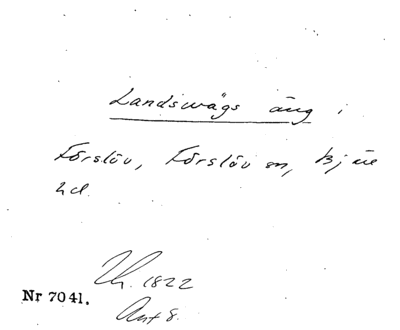 Landswägs äng i
Förslöv, Förslöv sn, Bjäre
hd.
Lh. 1822
Nr 7041.
Akt 8.